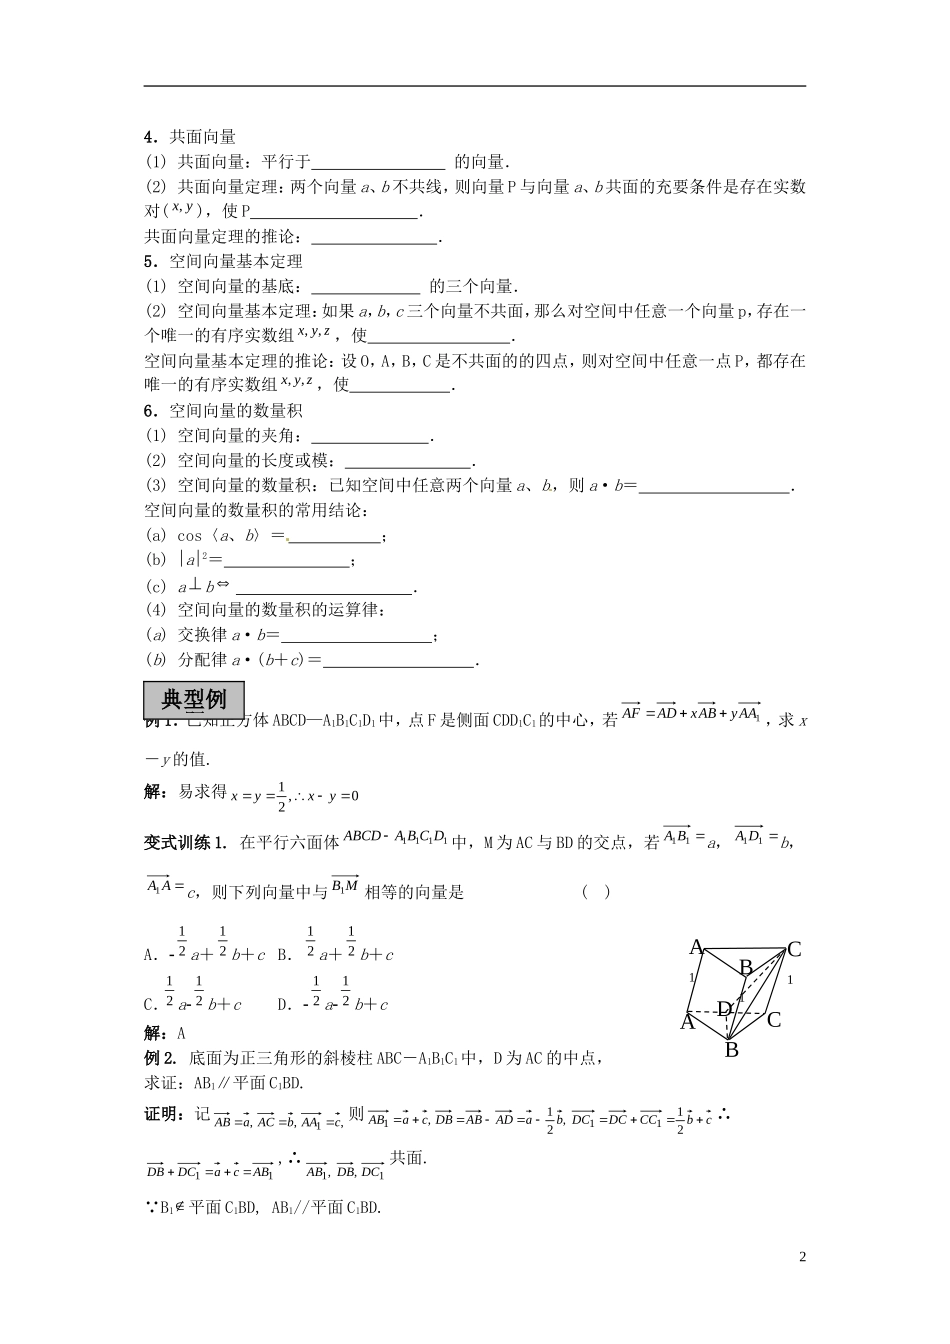 4．共面向量
(1) 共面向量：平行于________________ 的向量．
(2) 共面向量定理：两个向量 a、b 不共线，则向量 P 与向量 a、b 共面的充要条件是存在实数
对(x, y)，使 P____________________．
共面向量定理的推论：_______________．
5．空间向量基本定理
(1) 空间向量的基底：_____________ 的三个向量．
(2) 空间向量基本定理：如果 a，b，c 三个向量不共面，那么对空间中任意一个向量 p，存在一
个唯一的有序实数组 x, y, z ，使_________________．
空间向量基本定理的推论：设 O，A，B，C 是不共面的的四点，则对空间中任意一点 P，都存在
唯一的有序实数组 x, y, z ，使____________．
6．空间向量的数量积
(1) 空间向量的夹角：______________．
(2) 空间向量的长度或模：_______________．
(3) 空间向量的数量积：已知空间中任意两个向量 a、b，则 a·b＝__________________．
空间向量的数量积的常用结论：
(a) cos〈a、b〉＝___________；
(b) |a|²＝_______________；
(c) a⊥b⇔ _____________________．
(4) 空间向量的数量积的运算律：
(a) 交换律 a·b＝__________________；
(b) 分配律 a·(b＋c)＝__________________．
典型例
例 1. 已知正方体 ABCD—A₁B₁C₁D₁中，点 F 是侧面 CDD₁C₁的中心，若 AF = AD + xAB + yAA₁ ，求 x
－y 的值.
解：易求得 x = y = 1/2, ∴ x - y = 0
变式训练 1. 在平行六面体 ABCD - A₁B₁C₁D₁ 中，M 为 AC 与 BD 的交点，若 A₁B₁ = a，A₁D₁ = b，
A₁A = c，则下列向量中与 B₁M 相等的向量是 ( )
A．-1/2 a＋1/2 b＋c B．1/2 a＋1/2 b＋c
C．1/2 a-1/2 b＋c D．-1/2 a-1/2 b＋c
解：A
例 2. 底面为正三角形的斜棱柱 ABC－A₁B₁C₁中，D 为 AC 的中点，
求证：AB₁∥平面 C₁BD.
A
1
B
1
C
1
D
A
B
C
证明：记 AB = a, AC = b, AA₁ = c, 则 AB₁ = a + c, DB = AB - AD = a - 1/2 b, DC₁ = DC + CC₁ = 1/2 b + c ∴
DB + DC₁ = a + c = AB₁ , ∴ AB₁, DB, DC₁ 共面.
∵B₁∉平面 C₁BD, AB₁//平面 C₁BD.
2